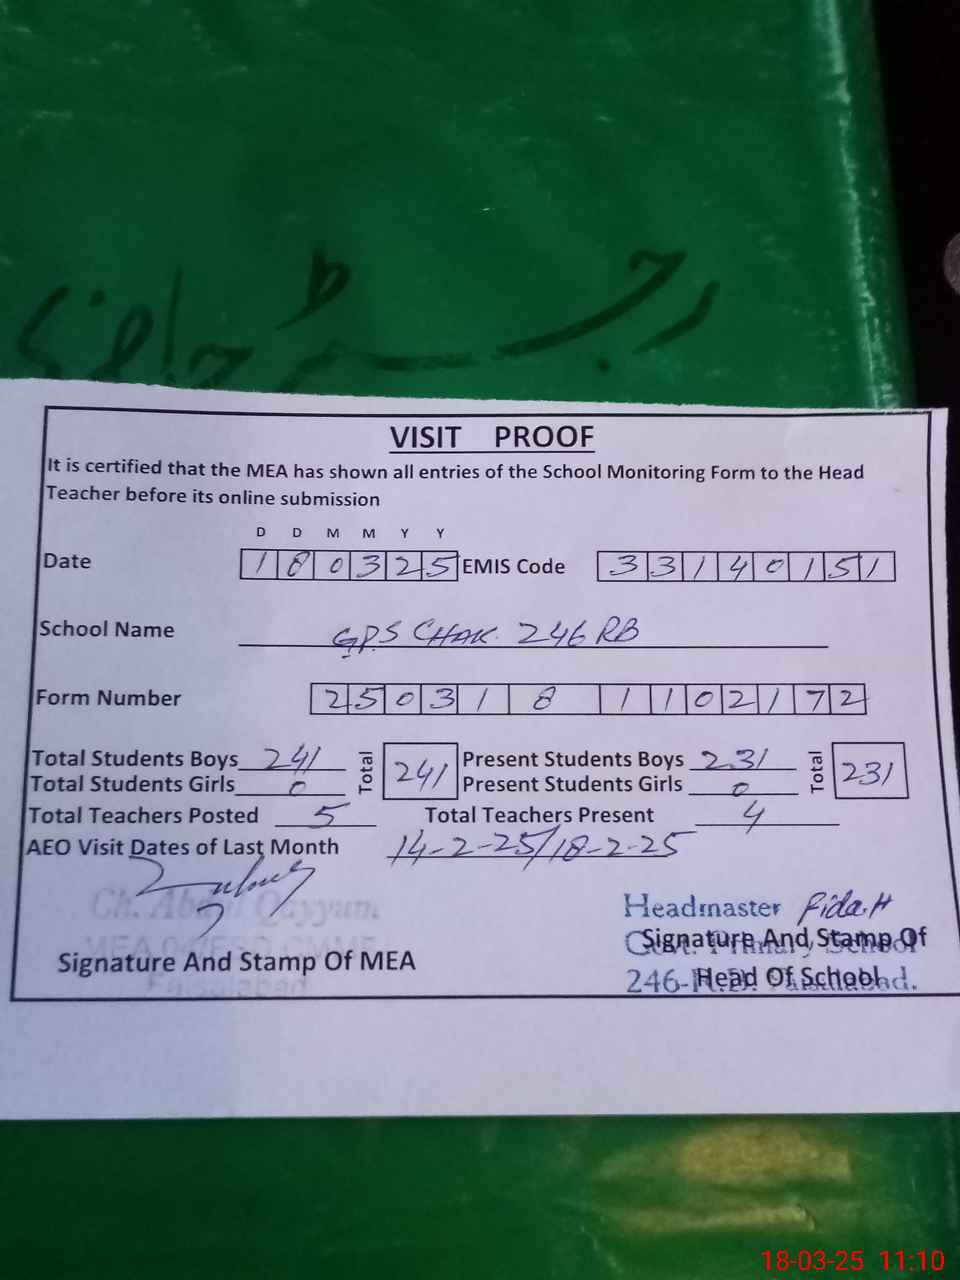 رجسٹر حاضری
VISIT PROOF
It is certified that the MEA has shown all entries of the School Monitoring Form to the Head
Teacher before its online submission
D D M M Y Y
Date 180325 EMIS Code 33140151
School Name GPS CHAK. 246 RB
Form Number 2503181102172
Total Students Boys 241 Total 241 Present Students Boys 231 Total 231
Total Students Girls 0 Present Students Girls 0
Total Teachers Posted 5 Total Teachers Present 4
AEO Visit Dates of Last Month 14-2-25/18-2-25
Ch. Abdul Qayyum
MEA
Faisalabad
Signature And Stamp Of MEA
Headmaster Fida.H
Govt. Primary School
246-R.B. Faisalabad.
Signature And Stamp Of
Head Of School
18-03-25 11:10